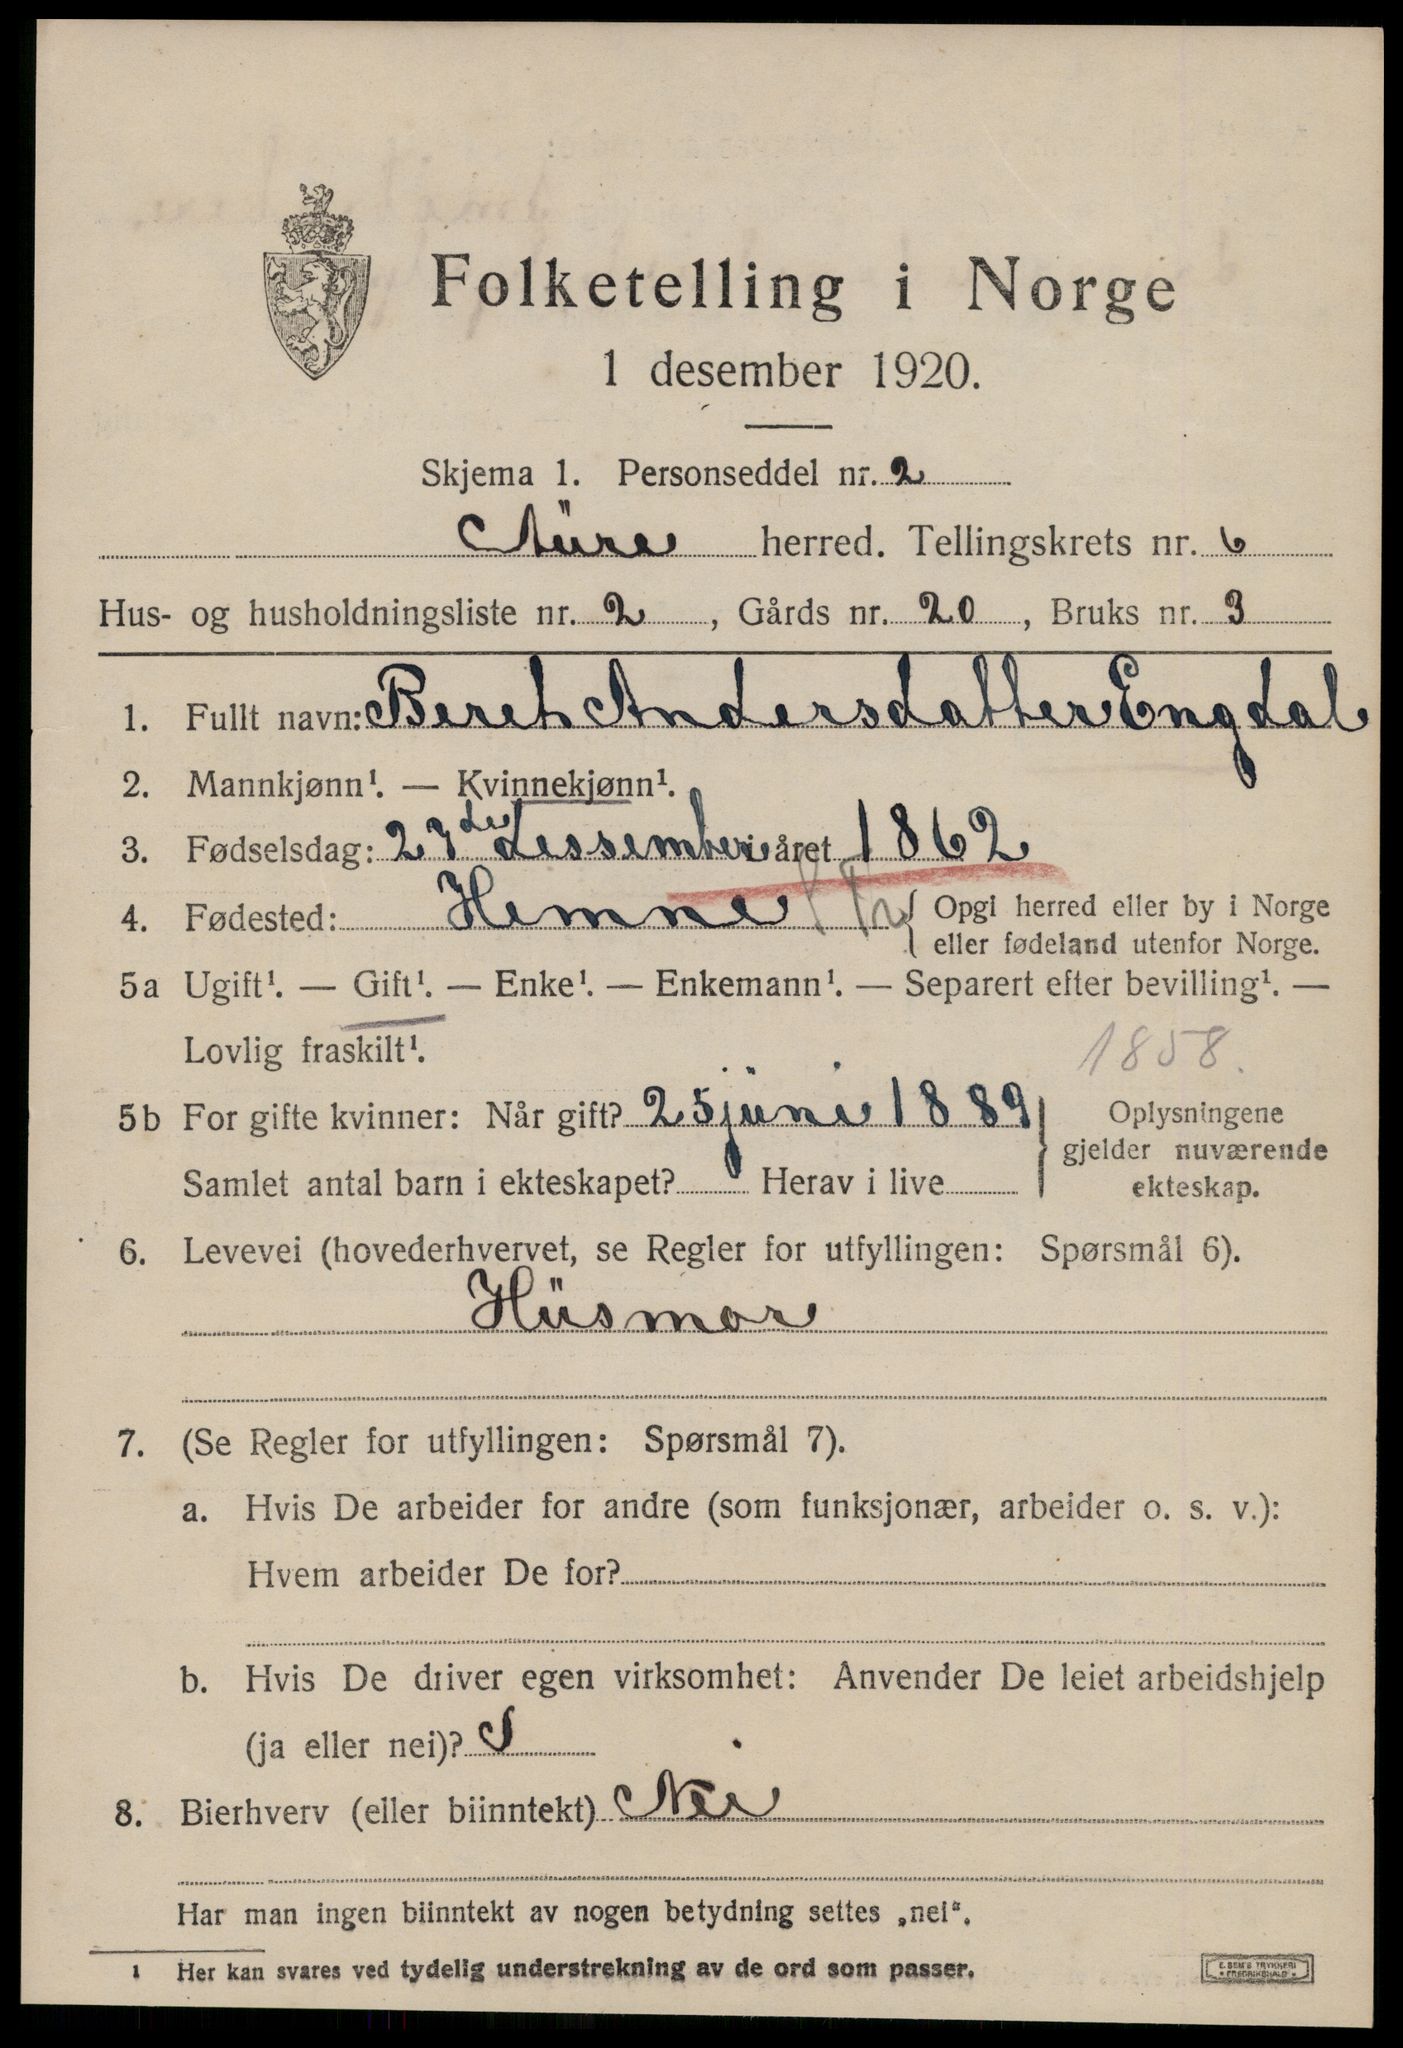 Folketelling i Norge
1 desember 1920.
Skjema 1. Personseddel nr. 2
Aüre herred. Tellingskrets nr. 6
Hus- og husholdningsliste nr. 2, Gårds nr. 20, Bruks nr. 3
1. Fullt navn: Beret Andersdatter Engdal
2. Mannkjønn¹. — Kvinnekjønn¹.
3. Fødselsdag: 23de dessember i året 1862
4. Fødested: Hemne Opgi herred eller by i Norge
eller fødeland utenfor Norge.
5a Ugift¹. — Gift¹. — Enke¹. — Enkemann¹. — Separert efter bevilling¹. —
Lovlig fraskilt¹. 1858.
5b For gifte kvinner: Når gift? 25 jüni 1889 Oplysningene
gjelder nuværende
Samlet antal barn i ekteskapet? Herav i live ekteskap.
6. Levevei (hovederhvervet, se Regler for utfyllingen: Spørsmål 6).
Hüsmor
7. (Se Regler for utfyllingen: Spørsmål 7).
a. Hvis De arbeider for andre (som funksjonær, arbeider o. s. v.):
Hvem arbeider De for?
b. Hvis De driver egen virksomhet: Anvender De leiet arbeidshjelp
(ja eller nei)?
8. Bierhverv (eller biinntekt) Nei
Har man ingen biinntekt av nogen betydning settes „nei“.
1 Her kan svares ved tydelig understrekning av de ord som passer.
E. SEM'S TRYKKERI
FREDRIKSHALD